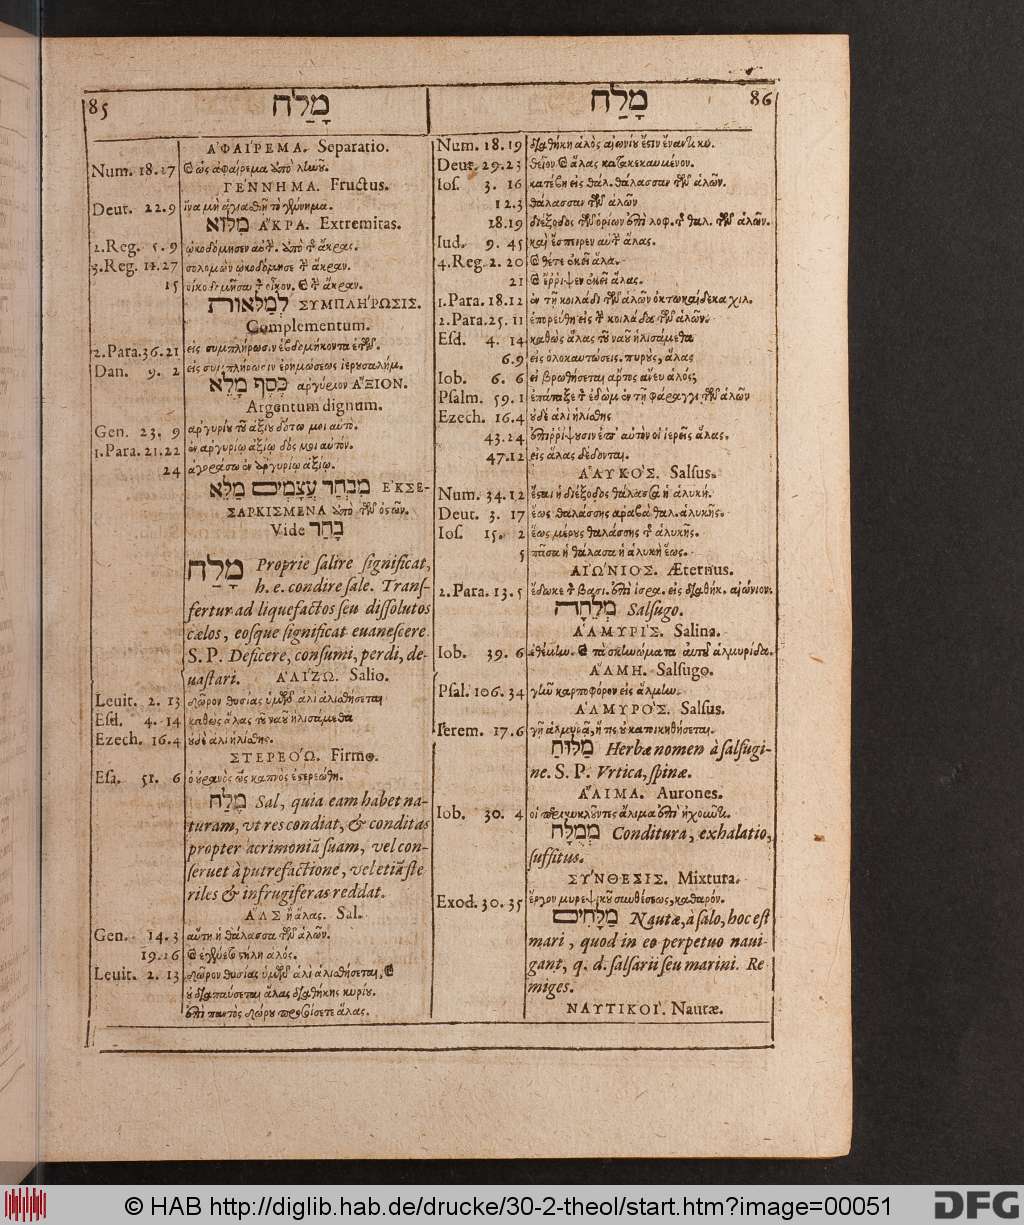 85 מָלַח
ἈΦΑΊΡΕΜΑ. Separatio.
Num. 18.27 ὡς ἀφαίρεμα ὑπὸ ληνοῦ.
ΓΈΝΝΗΜΑ. Fructus.
Deut. 22.9 ἵνα μὴ ἁγιασθῇ τὸ γέννημα.
מִלּוֹא ἌΚΡΑ. Extremitas.
2.Reg. 5.9
3.Reg. 11.27 σολομὼν ᾠκοδόμησε τὴν ἄκραν.
15
לְמַלֹּאות ΣΥΜΠΛΉΡΩΣΙΣ.
Complementum.
2.Para.36.21 εἰς συμπλήρωσιν ἑβδομήκοντα ἐτῶν.
Dan. 9. 2 εἰς συμπλήρωσιν ἐρημώσεως ἱερουσαλήμ.
כֶּסֶף מָלֵא ἀργύριον ἌΞΙΟΝ.
Argentum dignum.
Gen. 23. 9 ἀργυρίου τοῦ ἀξίου δότω μοι αὐτὸ.
1.Para. 21.22 ἐν ἀργυρίῳ ἀξίῳ δός μοι αὐτόν.
24 ἀγοράσω ἐν ἀργυρίῳ ἀξίῳ.
מִבְחַר עֲצָמִים מַלֵּא ἘΚΣΕ-
ΣΑΡΚΙΣΜΕΝΑ ὑπὸ τῶν ὀστῶν.
Vide בָּחַר
מָלַח Proprie salire significat,
h. e. condire sale. Trans-
fertur ad liquefactos seu dissolutos
cælos, eosque significat euanescere.
S. P. Deficere, consumi, perdi, de-
uastari. ἉΛΊΖΩ. Salio.
Leuit. 2. 13 δῶρον θυσίας ὑμῶν ἁλὶ ἁλισθήσεται
Esd. 4. 14 καθὼς ἅλας τοῦ ναοῦ ἡλισάμεθα
Ezech. 16.4 οὐδὲ ἁλὶ ἡλίσθης.
ΣΤΕΡΕΌΩ. Firmo.
Esa. 51. 6 ὁ οὐρανὸς ὡς καπνὸς ἐστερεώθη.
מֶלַח Sal, quia eam habet na-
turam, vt res condiat, & conditas
propter acrimoniã suam, vel con-
seruet à putrefactione, vel etiã ste
riles & infrugiferas reddat.
ἍΛΣ ἢ ἅλας. Sal.
Gen. 14.3 αὕτη ἡ θάλασσα τῶν ἁλῶν.
19.26 στήλη ἁλός.
Leuit. 2. 13 δῶρον θυσίας ὑμῶν ἁλὶ ἁλισθήσεται,
οὐ διαπαύσεται ἅλας διαθήκης κυρίου.
ἐπὶ παντὸς δώρου προσοίσετε ἅλας.
מָלַח 86
Num. 18. 19 διαθήκη ἁλὸς αἰωνίου ἔστιν ἔναντι κυ.
Deut. 29.23 θεῖον ἅλας κατακεκαυμένον.
Ios. 3. 16 κατέβη εἰς θαλ. θάλασσαν τῶν ἁλῶν.
12.3 θάλασσαν τῶν ἁλῶν
18.19 διέξοδος τῶν ὁρίων ἐπὶ λοφ. τ θαλ. τῶν ἁλῶν.
Iud. 9. 45 καὶ ἔσπειρεν αὐτὴν ἅλας.
4.Reg. 2. 20 θέτε ἐκεῖ ἅλα.
21 ἔρριψεν ἐκεῖ ἅλας.
1.Para. 18.12 ἐν τῇ κοιλάδι τῶν ἁλῶν ὀκτωκαίδεκα χιλ.
2.Para.25. 11 ἐπορεύθη εἰς τὴν κοιλάδα τῶν ἁλῶν.
Esd. 4. 14 καθὼς ἅλας τοῦ ναοῦ ἡλισάμεθα
6.9 εἰς ὁλοκαυτώσεις. πυρὸς, ἅλας
Iob. 6. 6 εἰ βρωθήσεται ἄρτος ἄνευ ἁλός;
Psalm. 59. 1 ἐπάταξε τὴν ἐδὼμ ἐν τῇ φάραγγι τῶν ἁλῶν
Ezech. 16.4 οὐδὲ ἁλὶ ἡλίσθης
43.24 ἐπιρρίψουσιν ἐπ' αὐτὸν οἱ ἱερεῖς ἅλας.
47.12 εἰς ἅλας δέδονται.
ἉΛΥΚΌΣ. Salsus.
Num. 34.12 ἔσται ἡ διέξοδος θάλασσα ἡ ἁλυκή.
Deut. 3. 17 ἕως θαλάσσης ἀραβὰ θαλ. ἁλυκῆς.
Ios. 15. 2 ἕως μέρους θαλάσσης τ ἁλυκῆς.
5 πᾶσα ἡ θάλασσα ἡ ἁλυκὴ ἕως.
ΑἸΏΝΙΟΣ. Æternus.
2.Para. 13.5 ἔδωκε τ βασι. ἐπὶ ἰσρα. εἰς διαθήκ. αἰώνιον.
מְלֵחָה Salsugo.
ἉΛΜΥΡΊΣ. Salina.
Iob. 39. 6 ἐθέμην. τὰ σκηνώματα αὐτοῦ ἁλμυρίδα.
ἍΛΜΗ. Salsugo.
Psal. 106. 34 γῆν καρποφόρον εἰς ἅλμην.
ἉΛΜΥΡΌΣ. Salsus.
Ierem. 17.6 γῇ ἁλμυρᾷ, ἥτις οὐ κατοικηθήσεται.
מַלּוּחַ Herbæ nomen à salsugi-
ne. S. P. Vrtica, spinæ.
ἍΛΙΜΑ. Aurones.
Iob. 30. 4 οἱ περικυκλοῦντες ἅλιμα ἐπὶ ἠχοῦντι.
מְמֻלָּח Conditura, exhalatio,
suffitus.
ΣΎΝΘΕΣΙΣ. Mixtura.
Exod. 30. 35 ἔργον μυρεψικοῦ συνθέσεως, καθαρόν.
מַלָּחִים Nautæ, à salo, hoc est
mari, quod in eo perpetuo naui-
gant, q. d. salsarii seu marini. Re
miges.
ΝΑΥΤΙΚΟΊ. Nautæ.
© HAB http://diglib.hab.de/drucke/30-2-theol/start.htm?image=00051
DFG